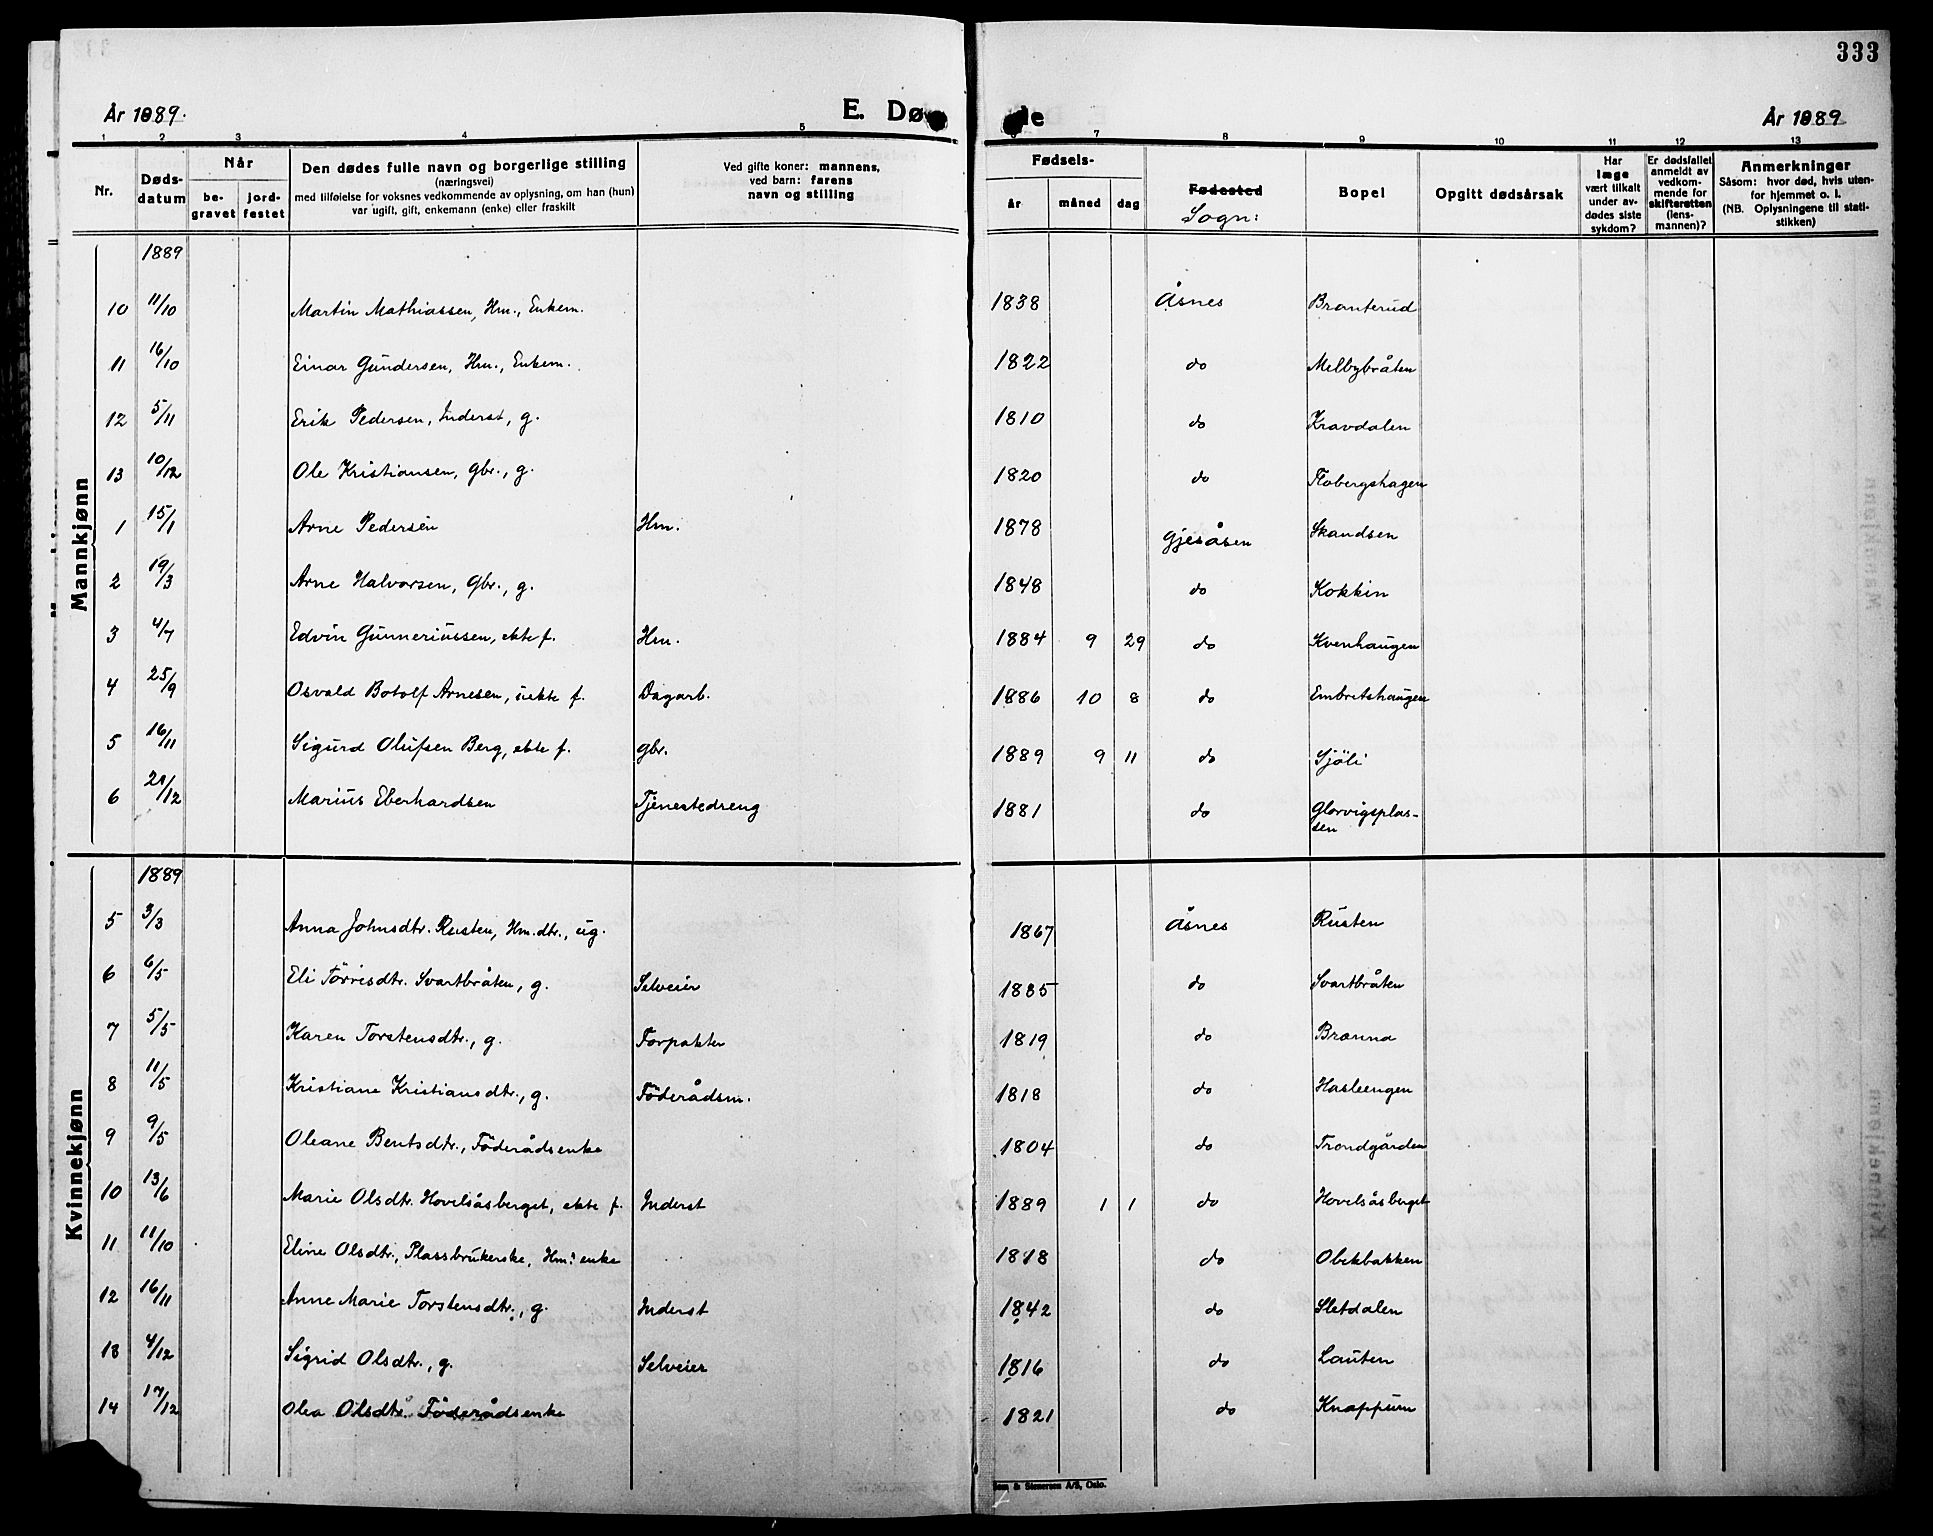 333
År 1889. E. Døde År 1889
1 2 3 4 5 7 8 9 10 11 12 13
Nr. Dødsdatum Når begravet jordfestet Den dødes fulle navn og borgerlige stilling (næringsvei) med tilføielse for voksnes vedkommende av oplysning, om han (hun) var ugift, gift, enkemann (enke) eller fraskilt Ved gifte koner: mannens, ved barn: farens navn og stilling Fødsels- år måned dag Fødested Sogn: Bopel Opgitt dødsårsak Har læge vært tilkalt under avdødes siste sykdom? Er dødsfallet anmeldt av vedkommende for skifteretten (lensmannen)? Anmerkninger Såsom: hvor død, hvis utenfor hjemmet o. l. (NB. Oplysningene til statistikken)
Mannkjønn
1889
10 11/10 Martin Mathiassen, Hm., Enkem. 1838 Åsnes Branterud
11 16/10 Einar Gundersen, Hm., Enkem. 1822 do Melbybråten
12 5/11 Erik Pedersen, Inderst, g. 1810 do Kravdalen
13 10/12 Ole Kristiansen, Gbr., g. 1820 do Flobergshagen
1 15/1 Arne Pedersen Hm. 1878 Gjesåsen Skandsen
2 19/3 Arne Halvorsen, Gbr., g. 1848 do Kokkin
3 4/7 Edvin Gunneriussen, ekte f. Hm. 1884 9 29 do Kvenhaugen
4 25/9 Osvald Botolf Arnesen, uekte f. Dagarb. 1886 10 8 do Embretshaugen
5 16/11 Sigurd Olufsen Berg, ekte f. gbr. 1889 9 11 do Sjöli
6 21/12 Marius Eberhardsen Tjenestedreng 1881 do Glorvigsplassen
Kvinnekjønn
1889
5 3/3 Anna Johnsdtr. Rusten, Hm.dtr., ug. 1867 Åsnes Rusten
6 6/5 Eli Törrisdtr. Svartbråten, g. Selveier 1835 do Svartbråten
7 5/5 Karen Torstensdtr., g. Forpakter 1819 do Branna
8 11/5 Kristiane Kristiansdtr., g. Föderådsm. 1818 do Hasleengen
9 9/5 Oleane Bentsdtr., Föderådsenke 1804 do Trondgården
10 13/6 Marie Olsdtr. Hovelsåsberget, ekte f. Inderst 1889 1 1 do Hovelsåsberget
11 11/10 Eline Olsdtr., Plassbrukerske, Hm.enke 1818 do Obekbakken
12 16/11 Anne Marie Torstensdtr., g. Inderst 1842 do Sletdalen
13 4/12 Sigrid Olsdtr., g. Selveier 1816 do Lauten
14 17/12 Olea Olsdtr. Föderådsenke 1821 do Knappum
& Stenersen A/S, Oslo.